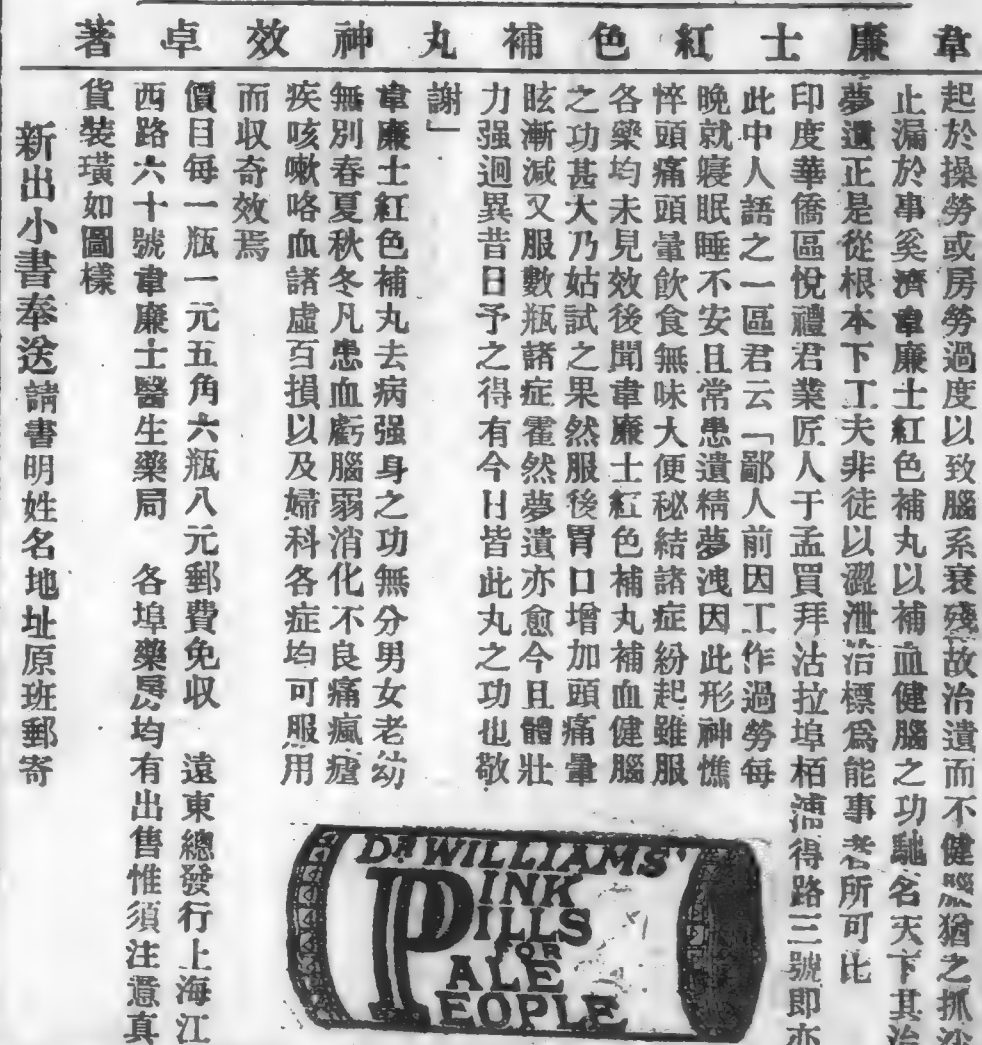 韋廉士紅色補丸神效卓著
起於操勞或房勞過度以致腦系衰殘故治遺而不健腦猶之抓沙
止漏於事奚濟韋廉士紅色補丸以補血健腦之功馳名天下其治
夢遺正是從根本下工夫非徒以澀泄治標爲能事者所可比
印度華僑區悅禮君業匠人于孟買拜沽拉埠栢浦得路三號即亦
此中人語之一區君云「鄙人前因工作過勞每
晚就寢眠睡不安且常患遺精夢洩因此形神憔
悴頭痛頭暈飲食無味大便秘結諸症紛起雖服
各藥均未見效後聞韋廉士紅色補丸補血健腦
之功甚大乃姑試之果然服後胃口增加頭痛暈
眩漸減又服數瓶諸症霍然夢遺亦愈今且體壯
力强迥異昔日予之得有今日皆此丸之功也敬
謝」
韋廉士紅色補丸去病强身之功無分男女老幼
無別春夏秋冬凡患血虧腦弱消化不良痛瘋瘧
疾咳嗽咯血諸虛百損以及婦科各症均可服用
而収奇效焉
價目每一瓶一元五角六瓶八元郵費免収 遠東總發行上海江
西路六十號韋廉士醫生藥局 各埠藥房均有出售惟須注意真
貨裝璜如圖樣
新出小書奉送請書明姓名地址原班郵寄
DR WILLIAMS'
PINK
PILLS
FOR
PALE
PEOPLE